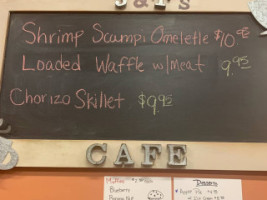 J & P's
Shrimp Scampi Omelette $10.95
Loaded Waffle w/meat 9.95
Chorizo Skillet $9.95
CAFE
Muffins
Blueberry
Desserts
Apple Pie